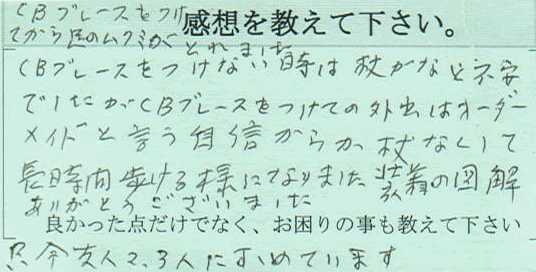 CBブレースをつけ
てから足のムクミがとれました
感想を教えて下さい。
CBブレースをつけない時は杖がないと不安
でしたがCBブレースをつけての外出はオーダー
メイドと言う自信からか杖なくして
長時間歩ける様になりました 装着の図解
ありがとうございました
良かった点だけでなく、お困りの事も教えて下さい
只今友人2,3人にすすめています